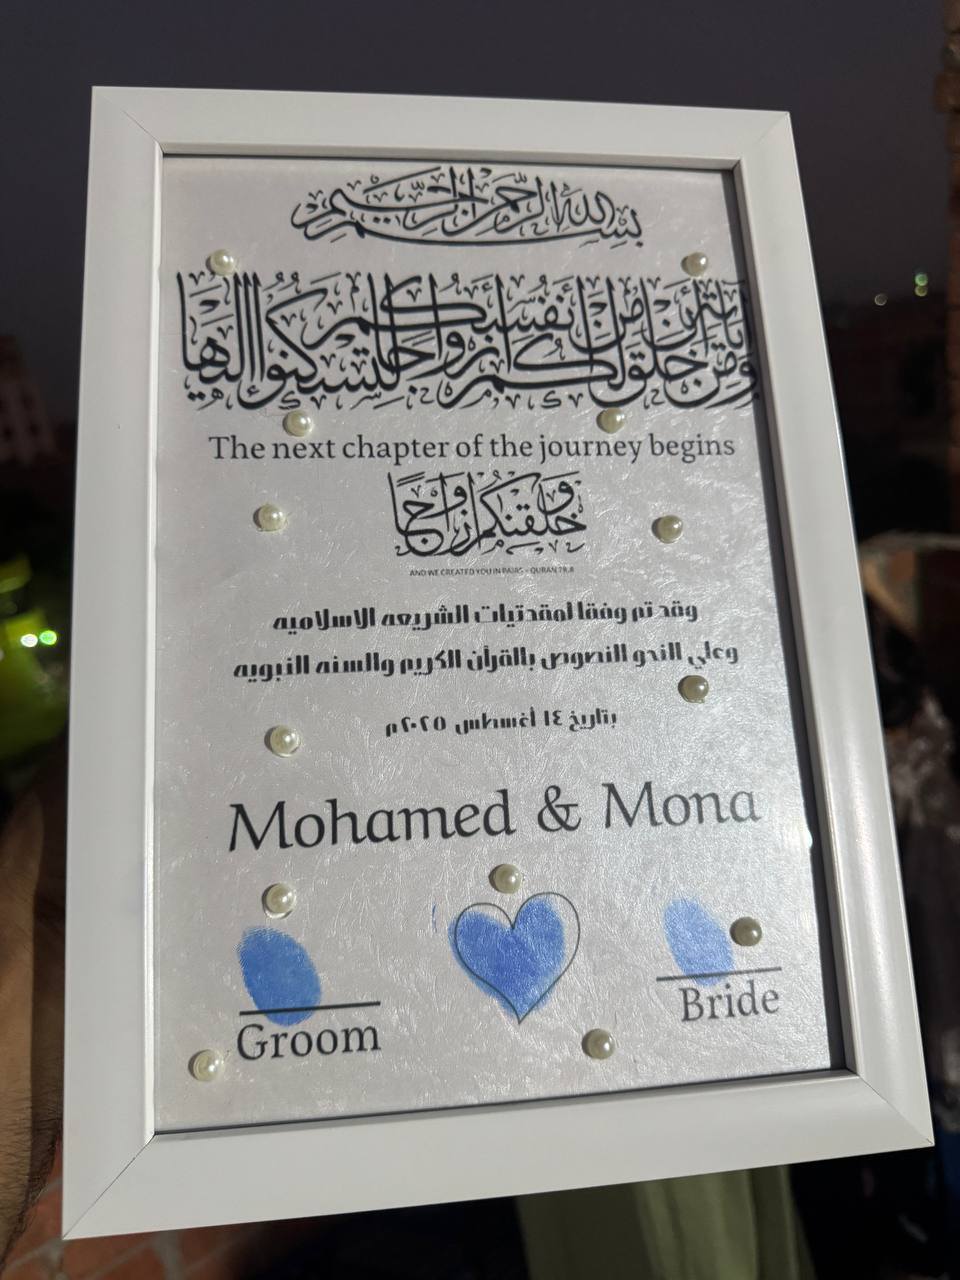 بسم الله الرحمن الرحيم
ومن آياته أن خلق لكم من أنفسكم أزواجا لتسكنوا إليها
The next chapter of the journey begins
وخلقنكم أزواجا
AND WE CREATED YOU IN PAIRS - QURAN 78:8
وقد تم وفقا لمقدتيات الشريعه الاسلاميه
وعلي النحو النصوص بالقرآن الكريم والسنه النبويه
بتاريخ ١٤ أغسطس ٢٠٢٥م
Mohamed & Mona
Groom
Bride